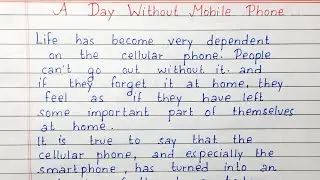 A Day Without Mobile Phone
Life has become very dependent
on the cellular phone. People
can't go out without it. and
if they forget it at home, they
feel as if they have left
some important part of themselves
at home.
It is true to say that the
cellular phone, and especially the
smartphone, has turned into an